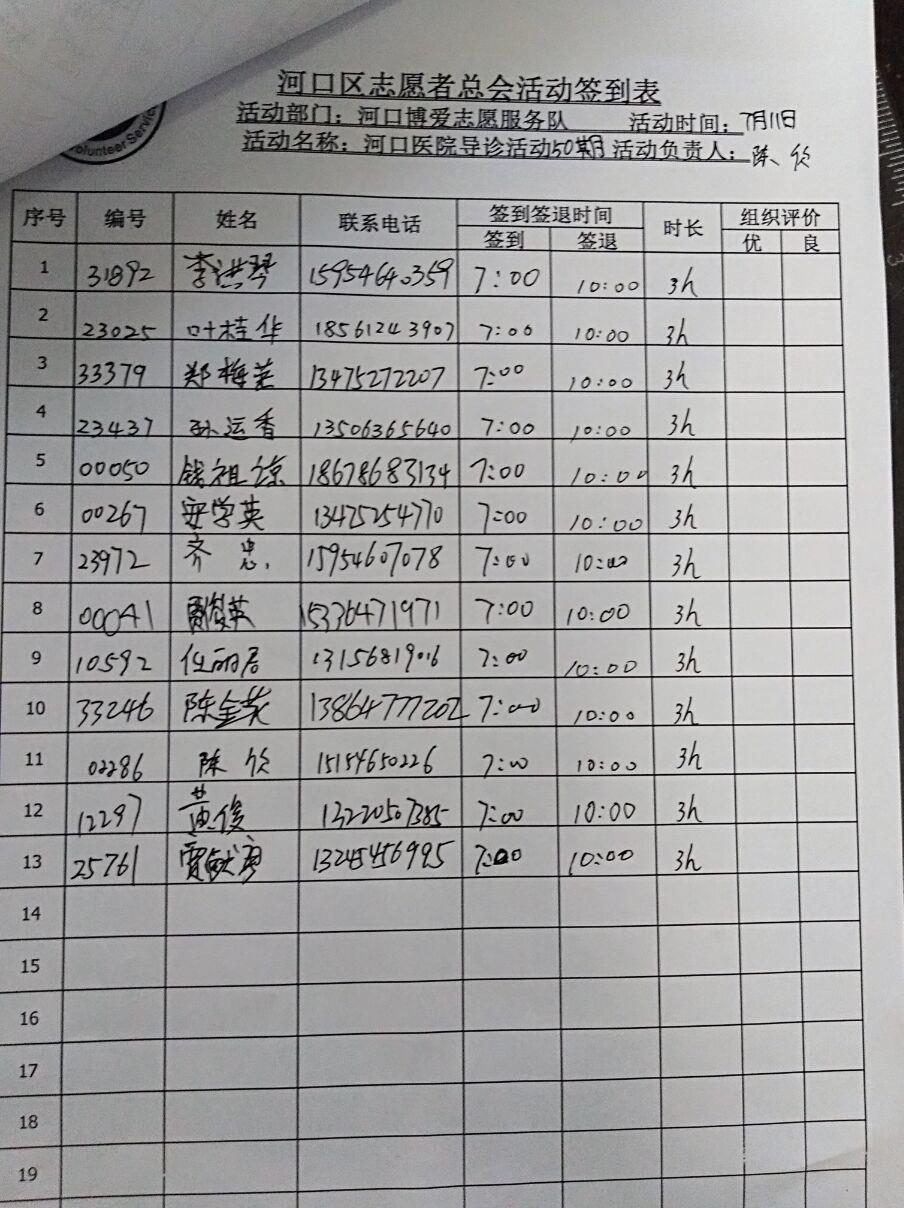 Volunteer Service
河口区志愿者总会活动签到表
活动部门：河口博爱志愿服务队 活动时间：7月11日
活动名称：河口医院导诊活动50期 活动负责人：陈欣
序号 编号 姓名 联系电话 签到签退时间 时长 组织评价
签到 签退 优 良
1 31892 李洪琴 15954640359 7:00 10:00 3h
2 23025 叶桂华 18561243907 7:00 10:00 3h
3 33379 郑梅兰 13475272207 7:00 10:00 3h
4 23437 孙运香 13506365640 7:00 10:00 3h
5 00050 钱祖谅 18678683134 7:00 10:00 3h
6 00267 安学英 13475254770 7:00 10:00 3h
7 23972 齐忠 15954607078 7:00 10:00 3h
8 00041 15336471971 7:00 10:00 3h
9 10592 任丽君 13156819016 7:00 10:00 3h
10 33246 陈金英 13864777202 7:00 10:00 3h
11 02286 陈欣 15154650226 7:00 10:00 3h
12 12297 黄俊 13220507385 7:00 10:00 3h
13 25761 13245456995 7:00 10:00 3h
14
15
16
17
18
19